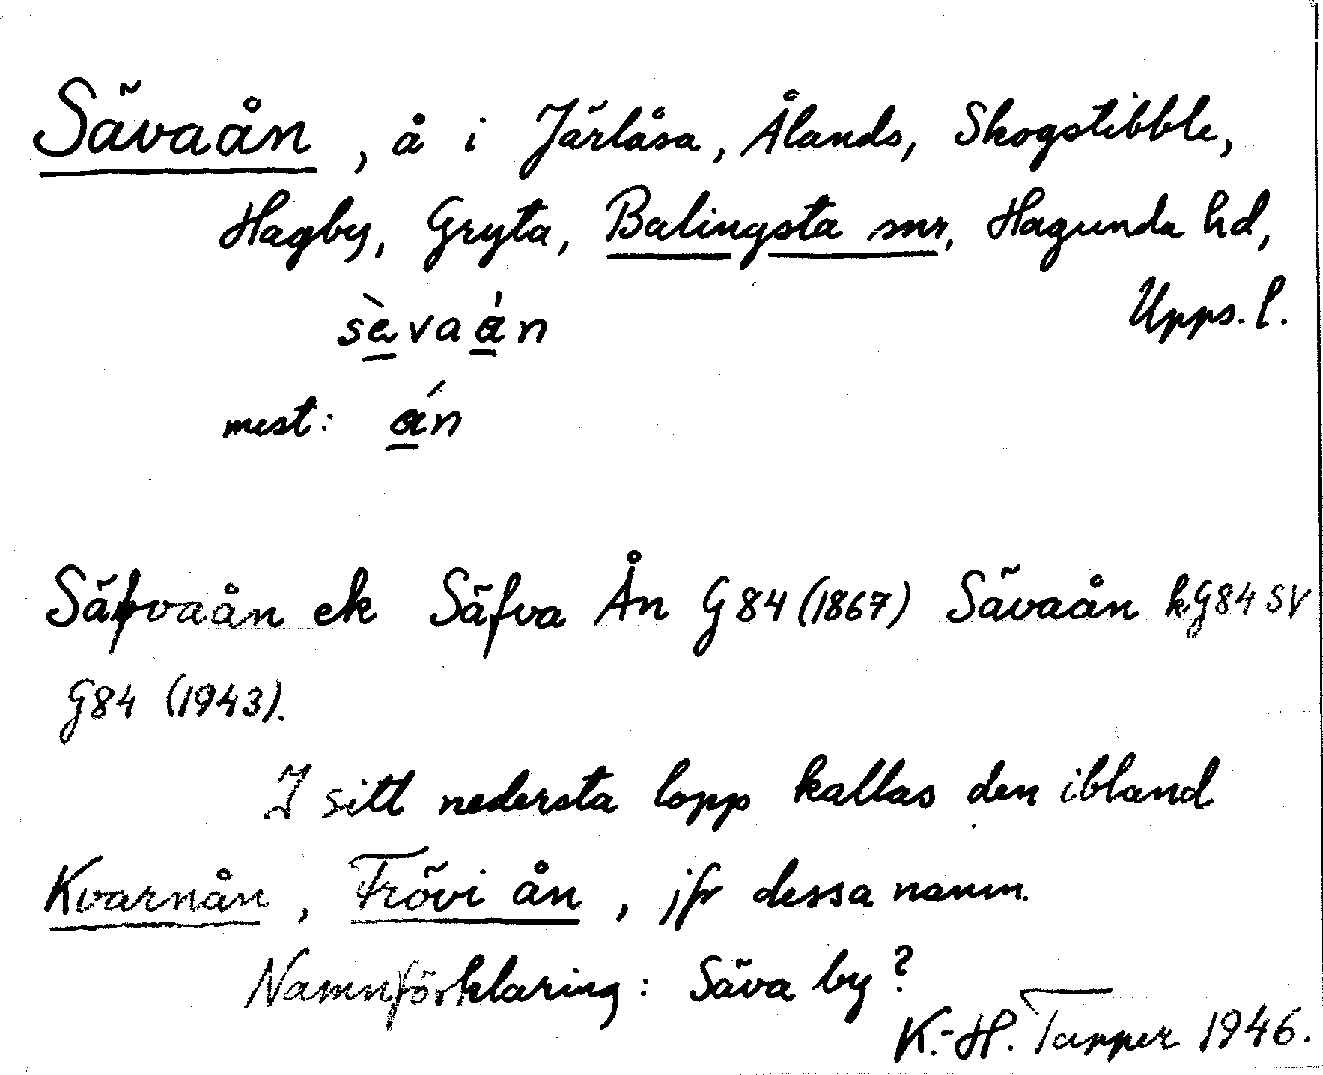 Sävaån, å i Järlåsa, Ålands, Skogstibble,
Hagby, Gryta, Balingsta snr, Hagunda hd,
Upps. l.
sèvaán
mest: án
Säfvaån ek Säfva Ån G84 (1867) Sävaån kG84 SV
G84 (1943).
I sitt nedersta lopp kallas den ibland
Kvarnån, Frövi ån, jfr dessa namn.
Namnförklaring: Säva by?
K.-H. Tapper 1946.